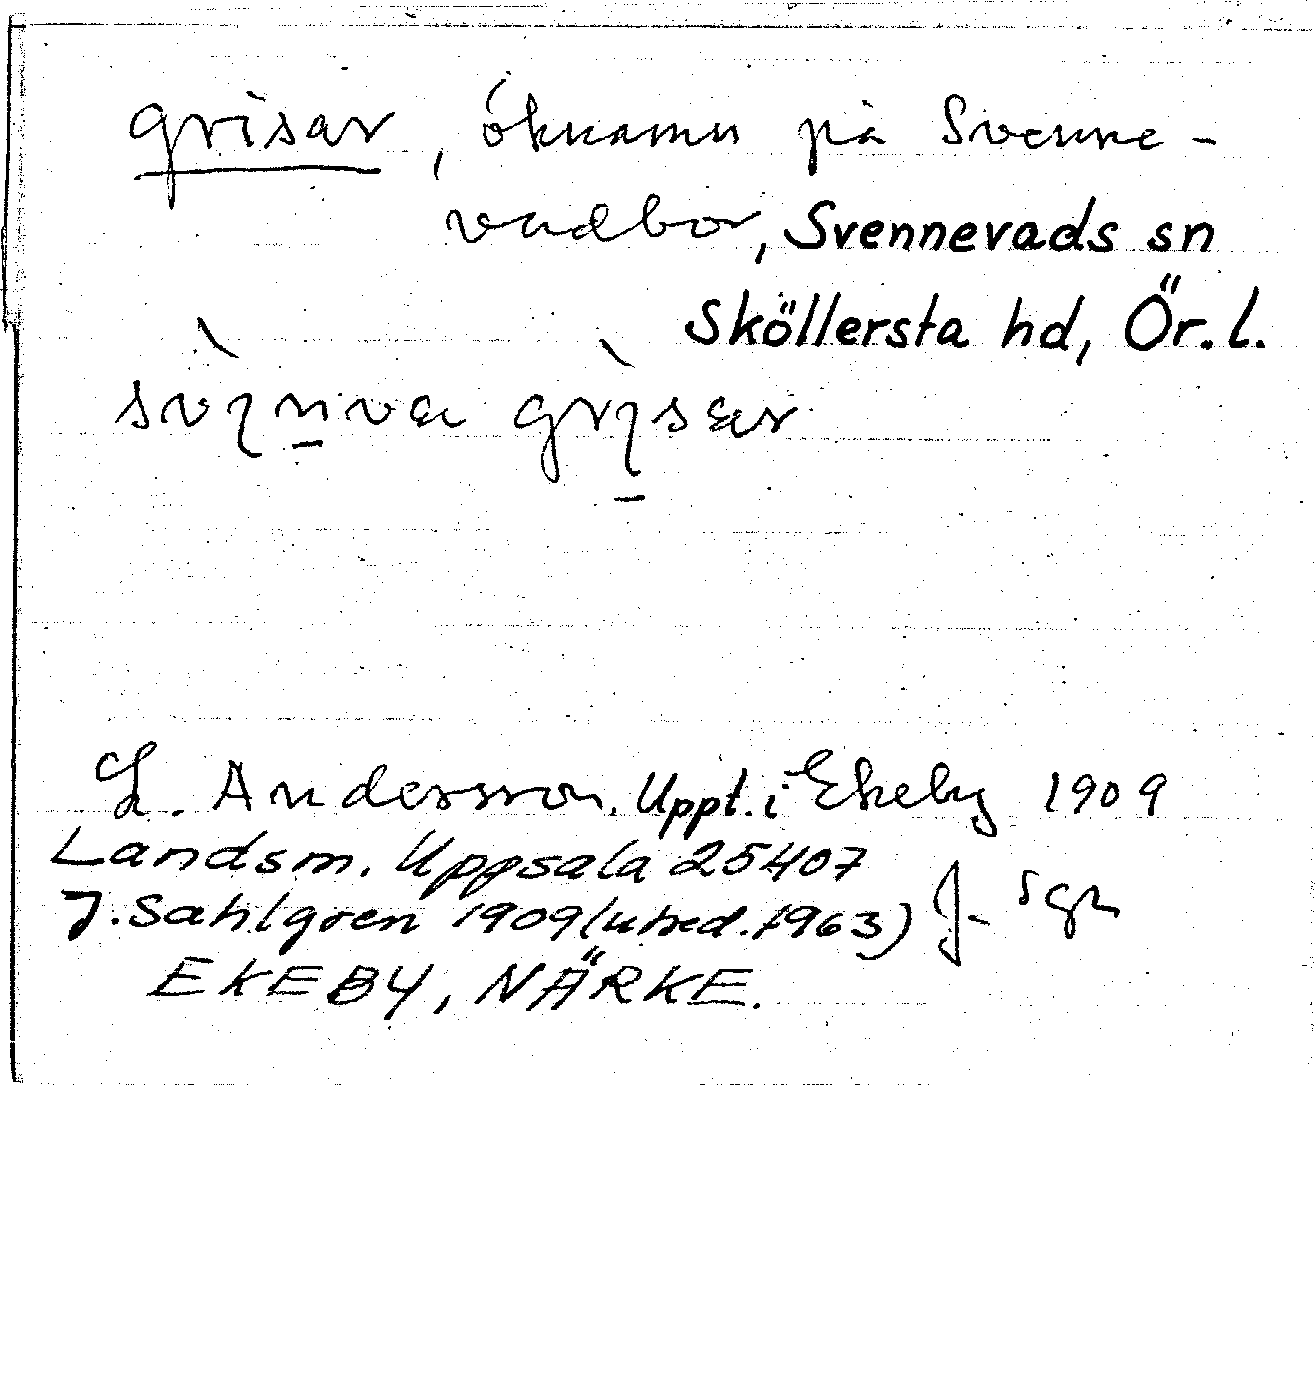 grisar, öknamn på Svenne-
vadbor, Svennevads sn
Sköllersta hd, Ör. l.
L. Andersson. Uppt. i Ekeby 1909
Landsm. Uppsala 25407
J. Sahlgren 1909 (utred. 1963) J- sgn
EKEBY, NÄRKE.